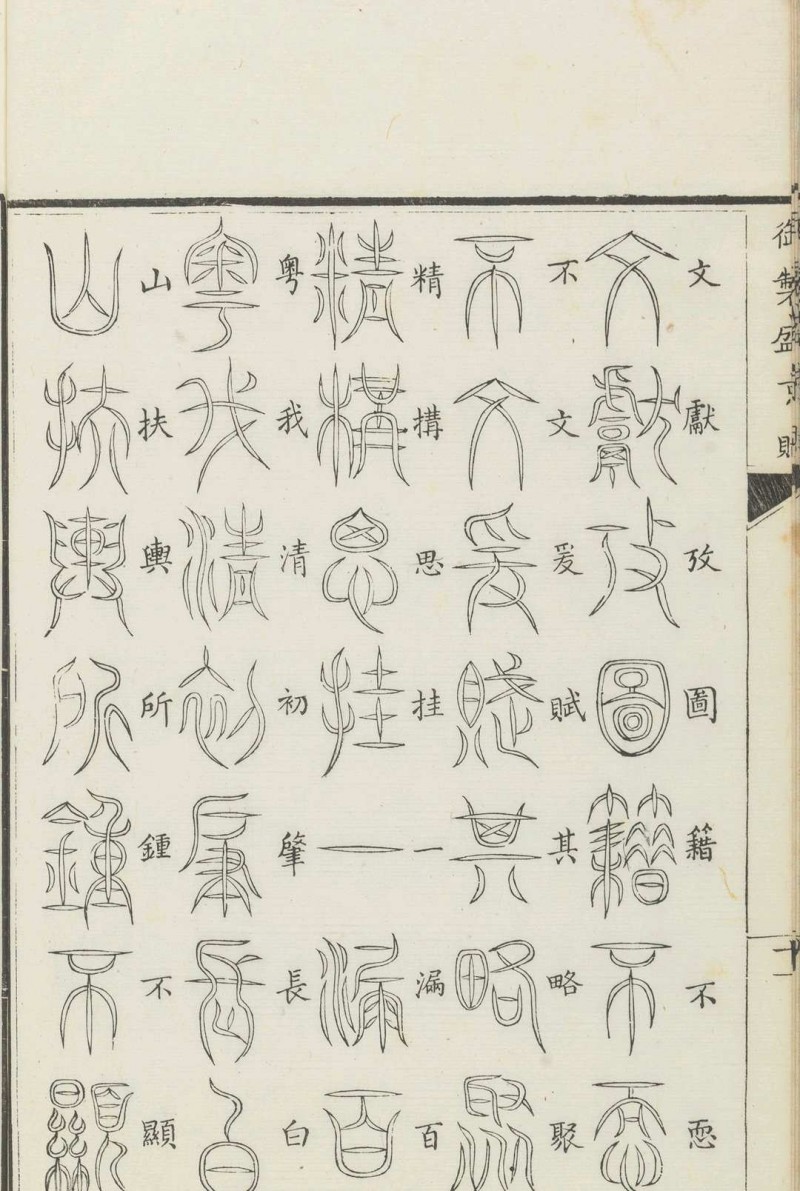 御製盛京賦
文獻攷圖籍不恧
不文爰賦其略聚
精搆思挂一漏百
粤我清初肇長白
山扶輿所鍾不顯